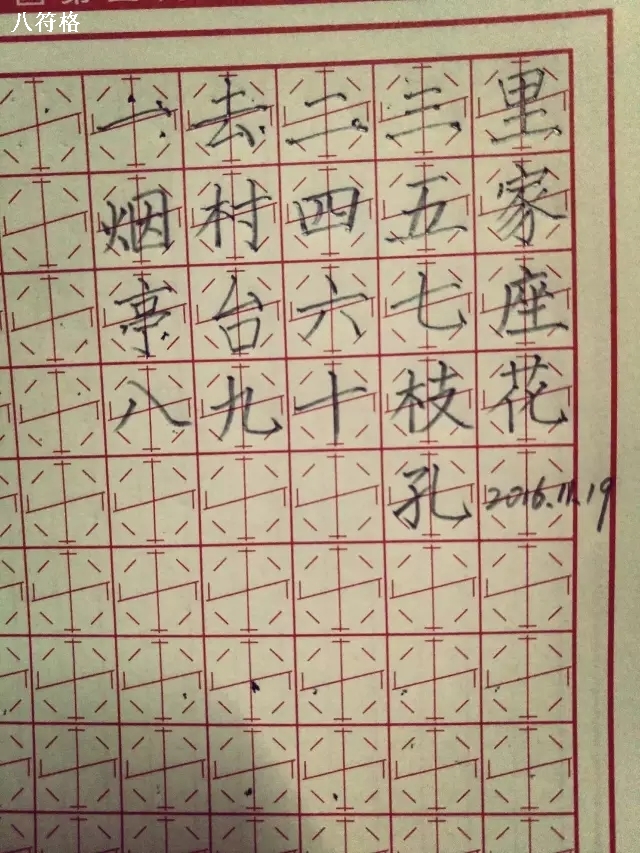 八符格
一去二三里
烟村四五家
亭台六七座
八九十枝花
孔 2016.11.19